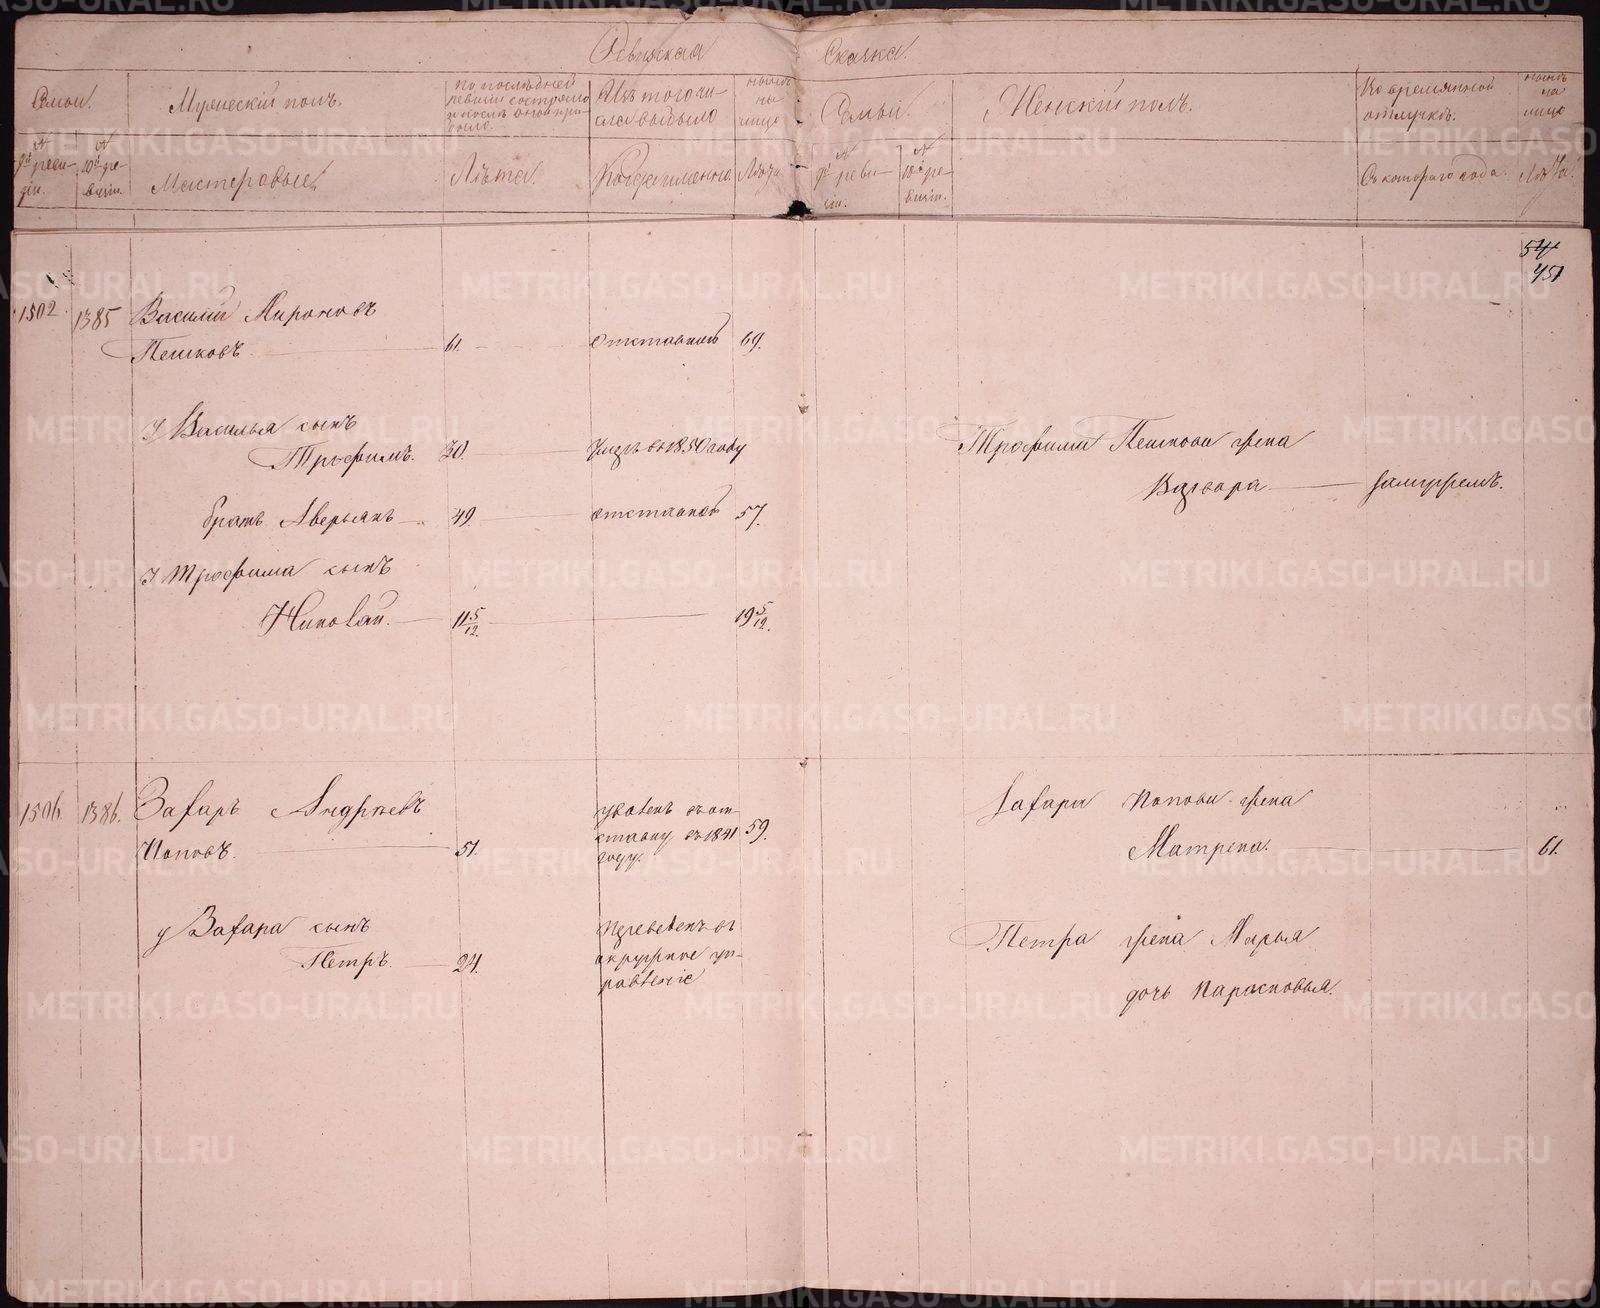 Ревижская Сказка.
Семьи.
Мужескій полъ.
По послѣдней
ревизіи состояло
и послѣ оной при-
было.
Изъ того чи-
сла выбыло
Нынѣ
на
лицо
Семьи.
Женскій полъ.
Во временной
отлучкѣ.
Нынѣ
на
лицо
№
9й реви-
зіи.
№
10й ре-
визіи.
Мастеровые
Лѣта.
Когда именно
Лѣта
№
9й реви-
зіи.
№
10й ре-
визіи.
Съ котораго года.
Лѣта.
54
451
1502. 1385 Василій Мироновъ
Пешковъ. 61. отставной 69.
У Василья сынъ
Трофимъ. 30. Умеръ въ 1850 году
Трофима Пешкова жена
Варвара замужемъ.
братъ Аверьянъ 49. отставной 57.
У Трофима сынъ
Николай. 11 5/12. 19 5/12.
1506. 1386. Захаръ Андреевъ
Поповъ. 51. уволенъ въ от-
ставку въ 1841
году. 59.
Захара Попова жена
Матрена. 61.
у Захара сынъ
Петръ. 24. Переведенъ въ
окружное уп-
равленіе
Петра жена Марья
дочь Парасковья.
METRIKI.GASO-URAL.RU